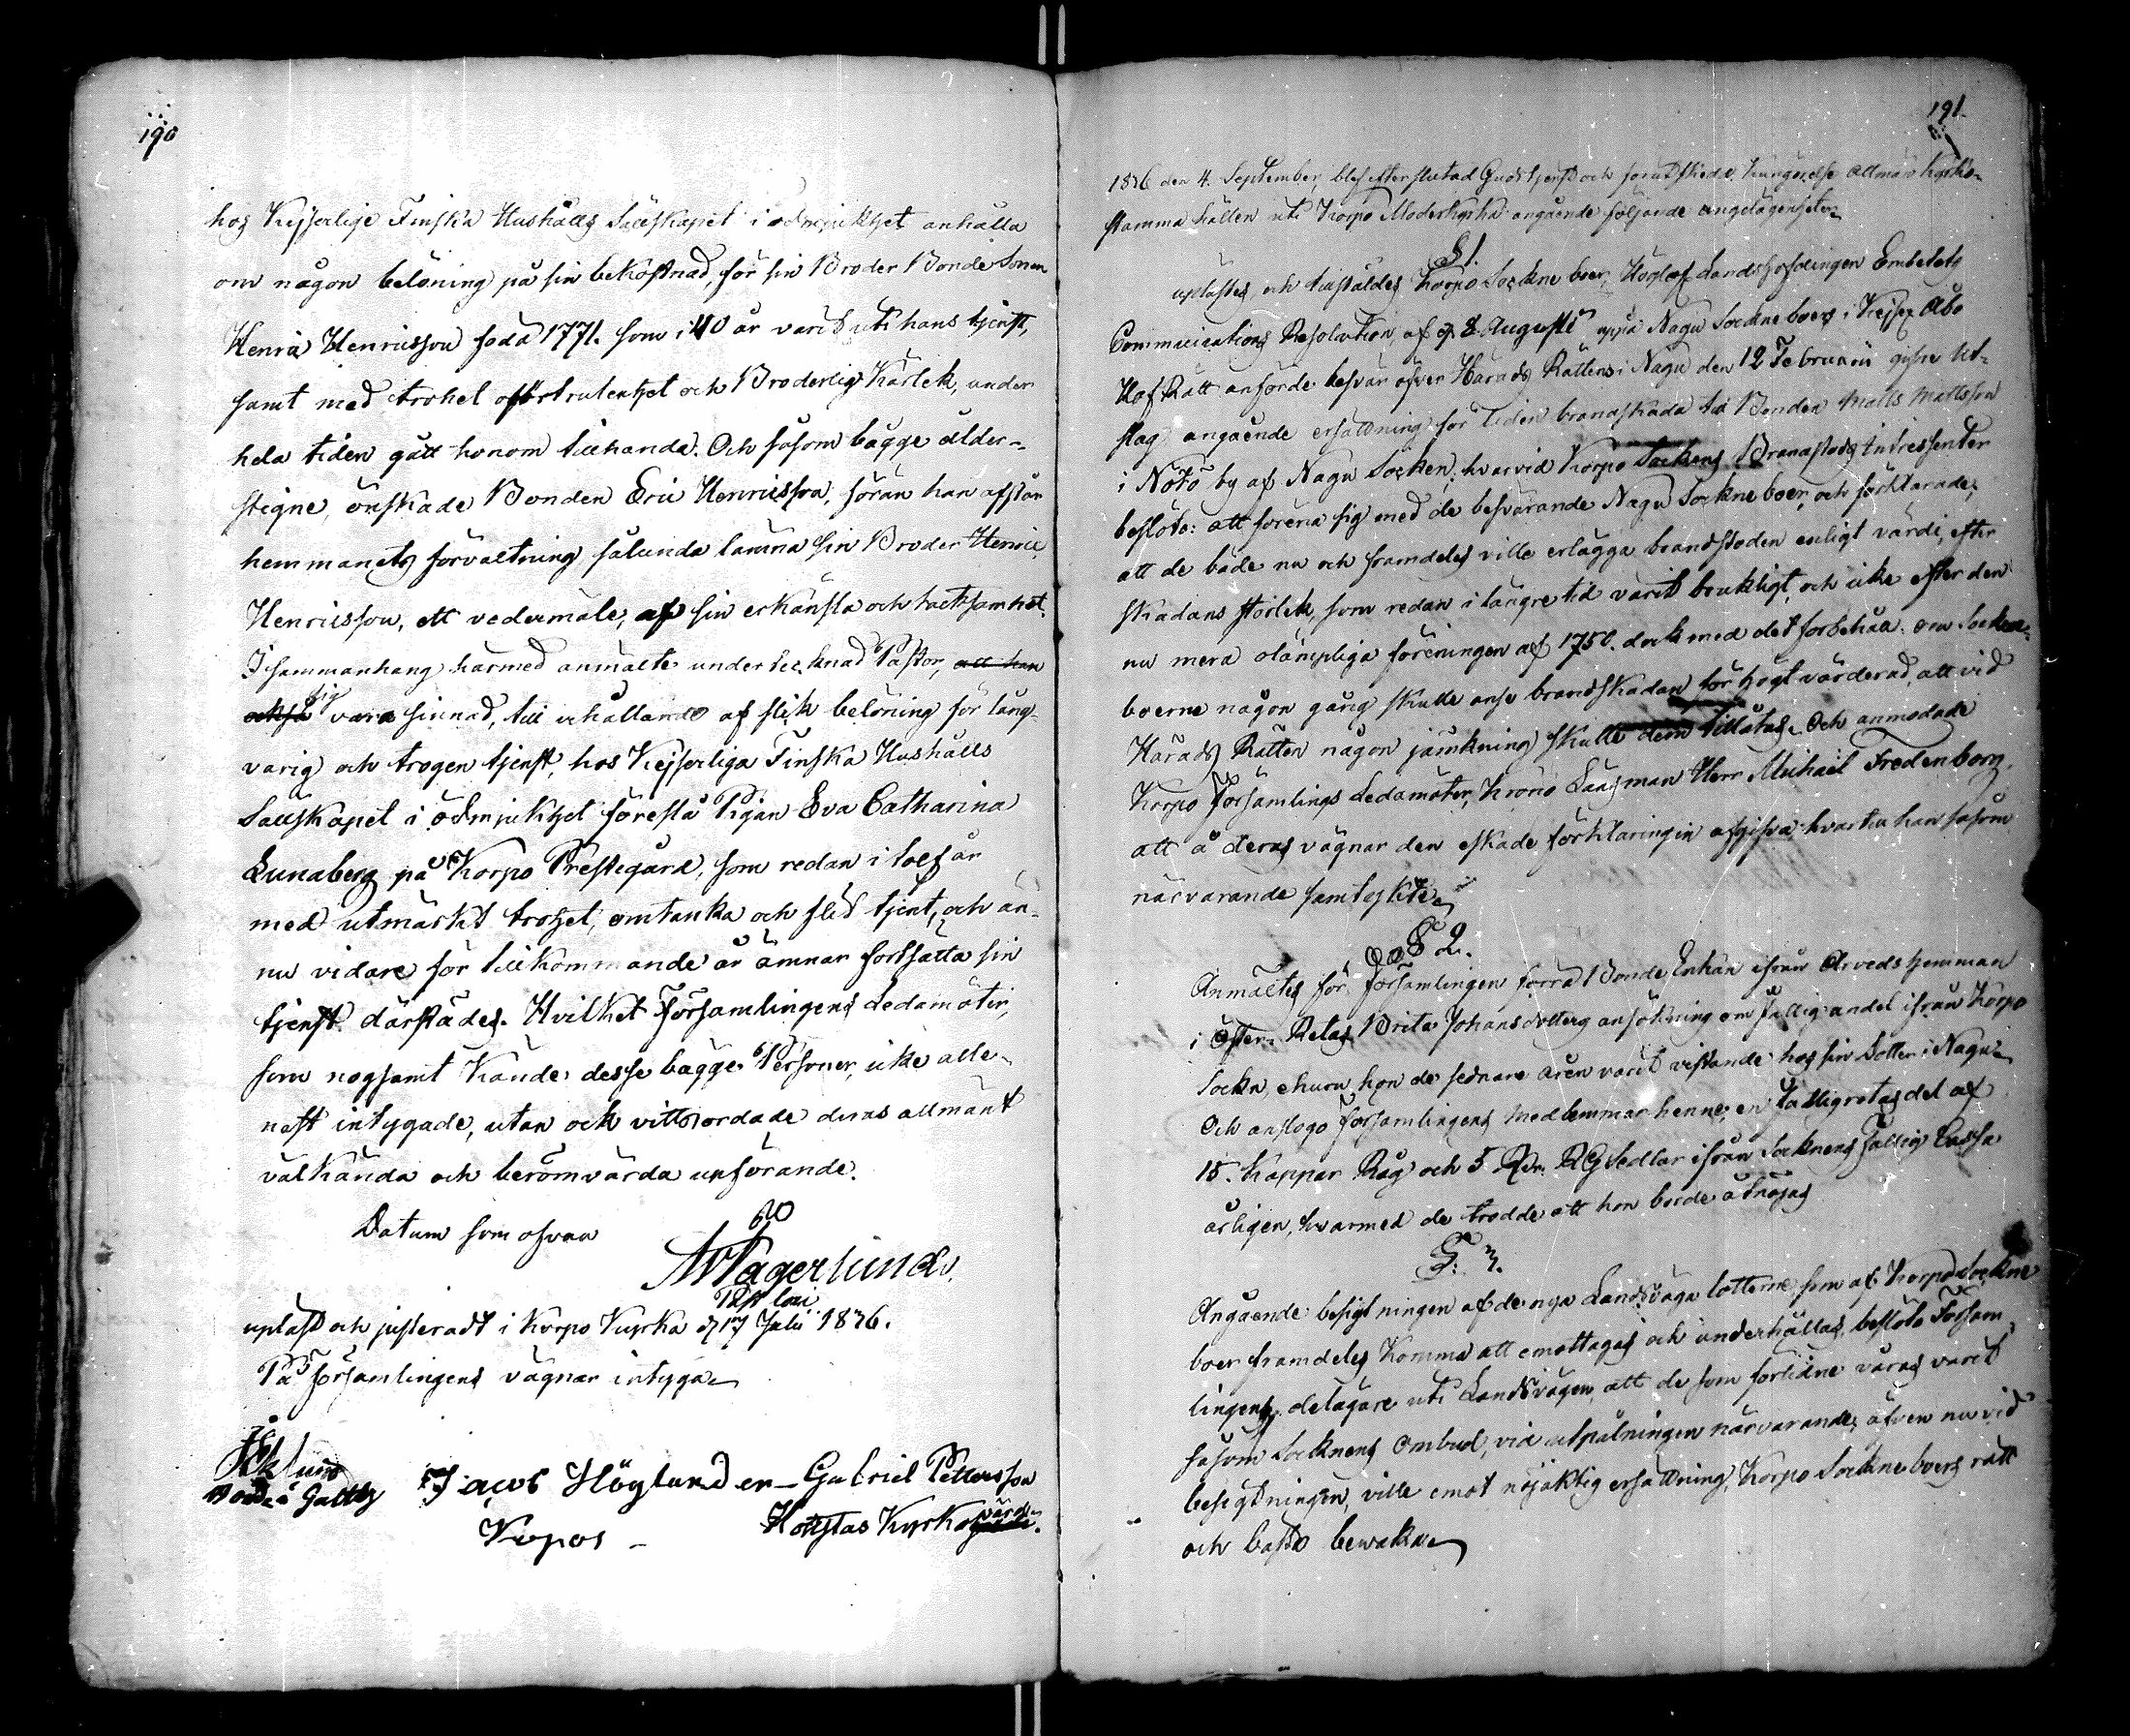 190
hos Kejserlige Finska Hushålls Sällskapet i ödmjukhet anhålla
om någon belöning på sin bekostnad, för sin Broder Bonde Sonen
Henric Henricsson född 1771. som i 40 år varit uti hans tjenst,
samt med trohet oförtrutenhet och Broderlig Kärlek, under
hela tiden gått honom tillhanda. Och såsom bägge ålder-
stigne, önskade Bonden Eric Henricsson, förän han afstår
hemmanets förvaltning sålunda lämna sin Broder Henric
Henricsson, ett vedermäle, af sin erkänsla och tacksamhet.
I sammanhang härmed anmälte undertecknad Pastor, att han
också sig vara sinnad, till erhållande af slik belöning för lång-
varig och trogen tjenst, hos Kejserliga Finska Hushålls
Sällskapet i ödmjukhet föreslå Pigan Eva Catharina
Lunaberg på Korpo Prestegård, som redan i tolf år
med utmärkt trohet, omtanka och flit tjent, och än-
nu vidare för tillkommande år ämnar fortsätta sin
tjenst därstädes. Hvilket Församlingens Ledamöter,
som nogsamt kände desse bägge Personer, icke alle-
nast intygade, utan ock vittsordade deras allmänt
välkända och berömvärda upförande.
Datum som ofvan
Fagerlund
Past loci
upläst och justeradt i Korpo Kyrka d 17 Julii 1836.
På Församlingens vägnar intyga
Eklund
Bonde i Galtby
Jacob Höglund en Gabriel Pettersson
Korpos
Kyrkovärd
191
1836 den 4. September, blef efter slutad Gudstjenst och förutskedd kungörelse Allmän Kyrko-
stämma hållen uti Korpo Moderkyrka angående följande angelägenheter
§ 1.
uplästes, och tillstäldes Korpo Sockne boer, Höglofl Landshöfdingen Embetets
Communications Resolution, af d 8 Augusti uppå Nagu Sockneboers i Kejser. Åbo
HofRätt anförde besvär öfver Härads Rättens i Nagu den 12 Februarii gifne Ut-
slag angående ersättning för liden brandskada till Bonden Matts Mattsson
i Nötö by af Nagu Socken; hvarvid Korpo Sockens Brandstods Intressenter
beslöto: att förena sig med de besvärande Nagu Sockneboer, och förklarade,
att de både nu och framdeles ville erlägga brandstoden enligt värdi, efter
skadans storlek, som redan i längre tid varit brukligt, och icke efter den
nu mera olämpliga föreningen af 1750. dock med det förbehåll: om Sockne-
boerne någon gång skulle anse brandskadan för högt värderad, att vid
Härads Rätten någon jämkning skulle dem tillåtas. Och anmodade
Korpo Församlings Ledamöter, Krono Länsman Herr Michael Fredenborg,
att å deras vägnar den eskade förklaringen afgifva hvartill han såsom
närvarande samtyckte
§ 2.
Anmältes för Församlingen förra Bonde Enkan ifrån Arveds hemman
i Öster Retais Brita Johansdotters ansökning om fattig andel ifrån Korpo
Sockn, ehuru hon de sednare åren varit vistande hos sin Dotter i Nagu
Och anslogo Församlingens Medlemmar henne, en Fattigrotas del af
15. Kappar Råg och 5 Rdr. RGSedlar ifrån Socknens Fattig Cassa
årligen, hvarmed de trodde att hon borde åtnöjas
§. 3.
Angående besigtningen af de nya Landsväga lotterne, som af Korpo Sockne
boer framdeles komma att emottagas och underhållas, beslöto Försam-
lingens delägare uti Landsvägen, att de som förlidne våras varit
såsom Socknens Ombud, vid utpålningen närvarande, äfven nu vid
besigtningen, ville emot nöjaktig ersättning, Korpo Sockneboers rätt
och bästa bewaka